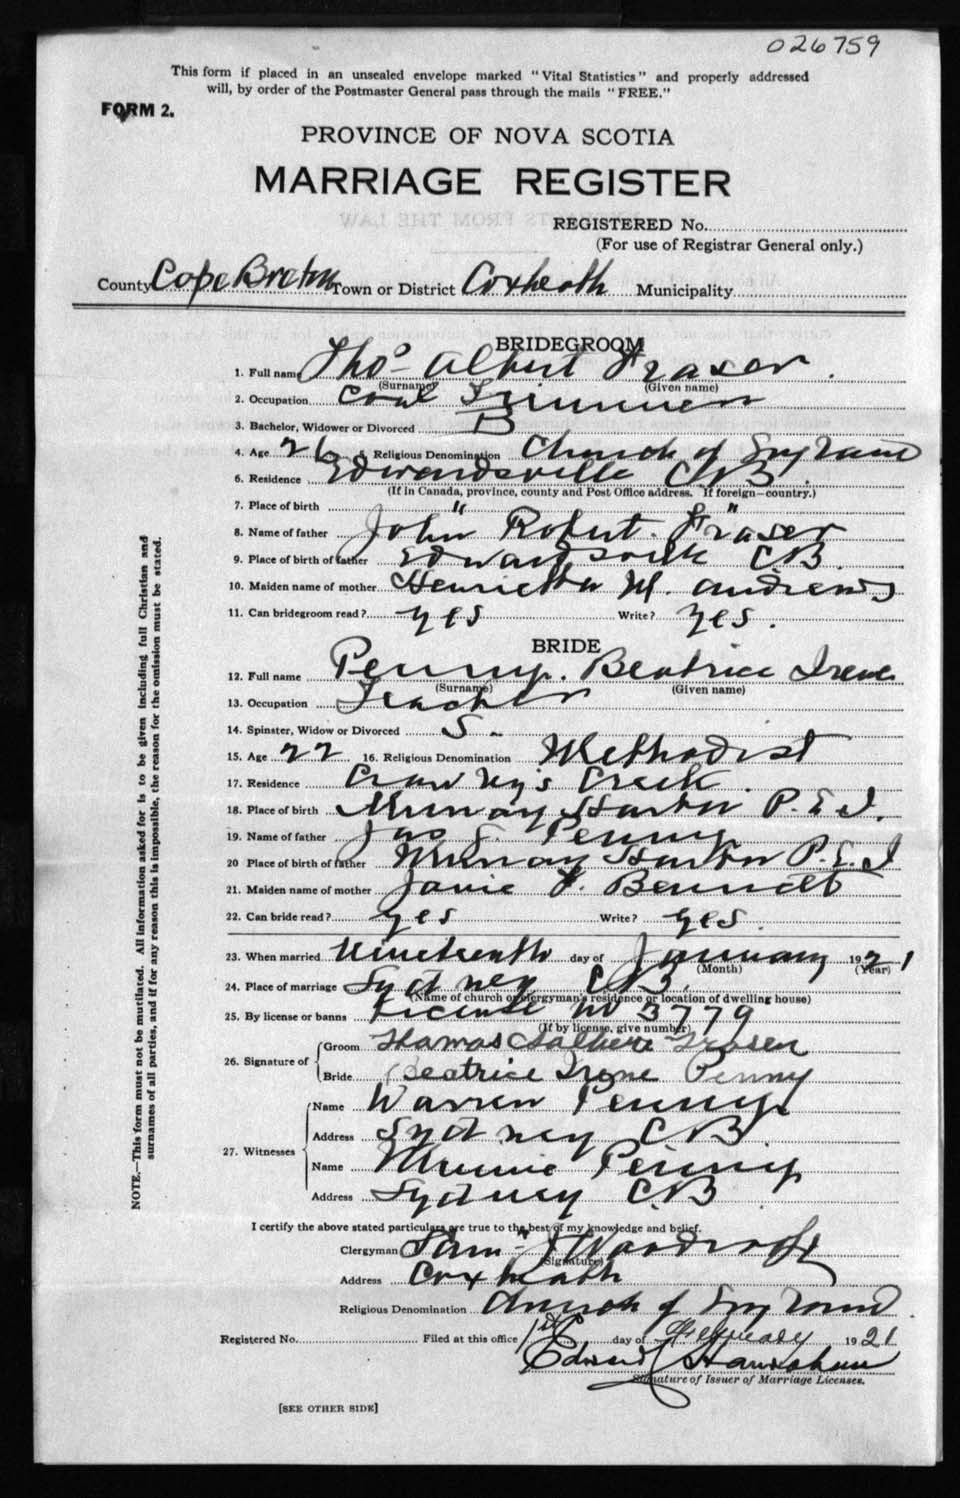 026759
This form if placed in an unsealed envelope marked "Vital Statistics" and properly addressed
will, by order of the Postmaster General pass through the mails "FREE."
FORM 2.
PROVINCE OF NOVA SCOTIA
MARRIAGE REGISTER
REGISTERED No.
(For use of Registrar General only.)
County Cape Breton Town or District Coxheath Municipality
BRIDEGROOM
1. Full name Thos Albert Fraser.
(Surname) (Given name)
2. Occupation Coal Trimmer
3. Bachelor, Widower or Divorced B
4. Age 26 5. Religious Denomination Church of England
6. Residence Edwardsville C.B.
(If in Canada, province, county and Post Office address. If foreign—country.)
7. Place of birth " "
8. Name of father John Robert Fraser
9. Place of birth of father Edwardsville CB.
10. Maiden name of mother Henrietta M. Andrews
11. Can bridegroom read? yes Write? yes.
BRIDE
12. Full name Penny. Beatrice Irene
(Surname) (Given name)
13. Occupation Teacher
14. Spinster, Widow or Divorced S.
15. Age 22 16. Religious Denomination Methodist
17. Residence Crawley's Creek.
18. Place of birth Murray Harbor P.E.I.
19. Name of father Jas S. Penny
20 Place of birth of father Murray Harbor P.E.I
21. Maiden name of mother Janie Bennett
22. Can bride read? yes Write? yes.
23. When married Nineteenth day of January 1921
(Month) (Year)
24. Place of marriage Sydney C.B.
(Name of church or clergyman's residence or location of dwelling house)
25. By license or banns License no 3779
(If by license, give number)
26. Signature of Groom Thomas Fraser
Bride Beatrice Irene Penny
27. Witnesses Name Warren Penny
Address Sydney CB
Name Minnie Penny
Address Sydney C.B
I certify the above stated particulars are true to the best of my knowledge and belief.
Clergyman Sam'l J Woodroofe
(Signature)
Address Coxheath
Religious Denomination Church of England
Registered No. Filed at this office 1st day of February 1921
Edward
Signature of Issuer of Marriage Licenses.
[SEE OTHER SIDE]
NOTE.—This form must not be mutilated. All information asked for is to be given including full Christian and
surnames of all parties, and if for any reason this is impossible, the reason for the omission must be stated.